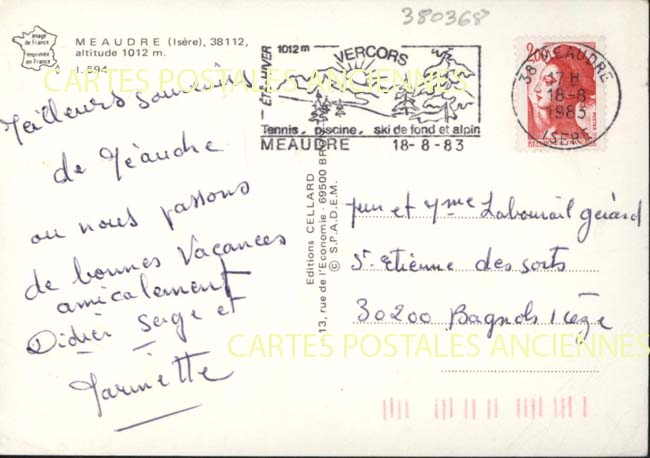 380368
image de France
Imprimée en France
MEAUDRE (Isère), 38112,
altitude 1012 m.
I. 594
CARTES POSTALES ANCIENNES
ÉTÉ-HIVER
1012 m
VERCORS
Tennis, piscine, ski de fond et alpin
MEAUDRE 18-8-83
2,00
38 MEAUDRE
17 H
18-8
1983
ISERE
Meilleurs souvenirs
de Méaudre
ou nous passons
de bonnes Vacances
amicalement
Didier Serge et
Mariette
Editions CELLARD
13, rue de l'Economie - 69500 BRON
© S.P.A.D.E.M.
et Mme Laboureil Gérard
St Etienne des sorts
30200 Bagnols s/Cèze
CARTES POSTALES ANCIENNES